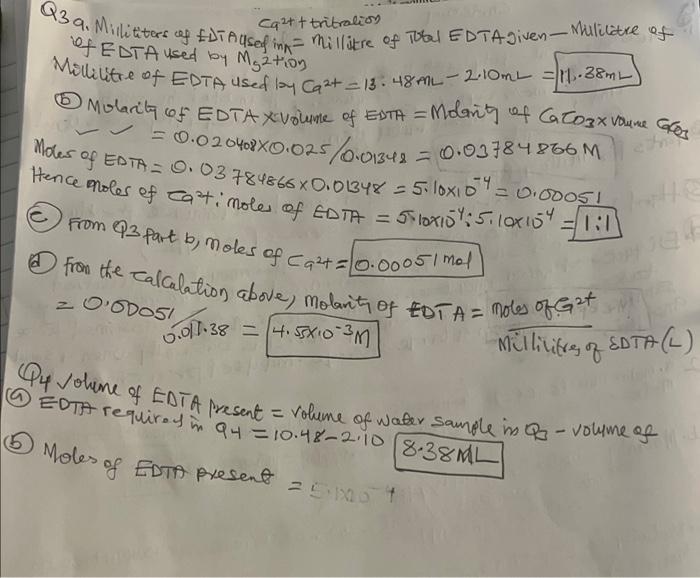 Q3
a. Milliliters of EDTA used in Ca2+ titration = millilitre of Total EDTA given - Millilitre of
of EDTA used by Mg2+ion
Millilitre of EDTA used by Ca2+ = 13.48mL - 2.10mL = 11.38mL
(b) Molarity of EDTA x volume of EDTA = Molarity of CaCO3 x voume CaCO3
= 0.020408x0.025/0.01348 = 0.03784866M
Moles of EDTA = 0.03784866x0.01348 = 5.10x10-4 = 0.00051
Hence moles of Ca2+: moles of EDTA = 5.10x10-4 : 5.10x10-4 = 1:1
(c) From Q3 part b, moles of Ca2+ = 0.00051 mol
(d) from the calcalation above, molarity of EDTA = moles of Ca2+
= 0.00051/0.011.38 = 4.55x10-3M Millilitres of EDTA(L)
Q4 volume of EDTA present = volume of water sample in Q3 - volume of
(a) EDTA required in q4 = 10.48-2.10 8.38ML
(b) Moles of EDTA present = 5.1x10-4